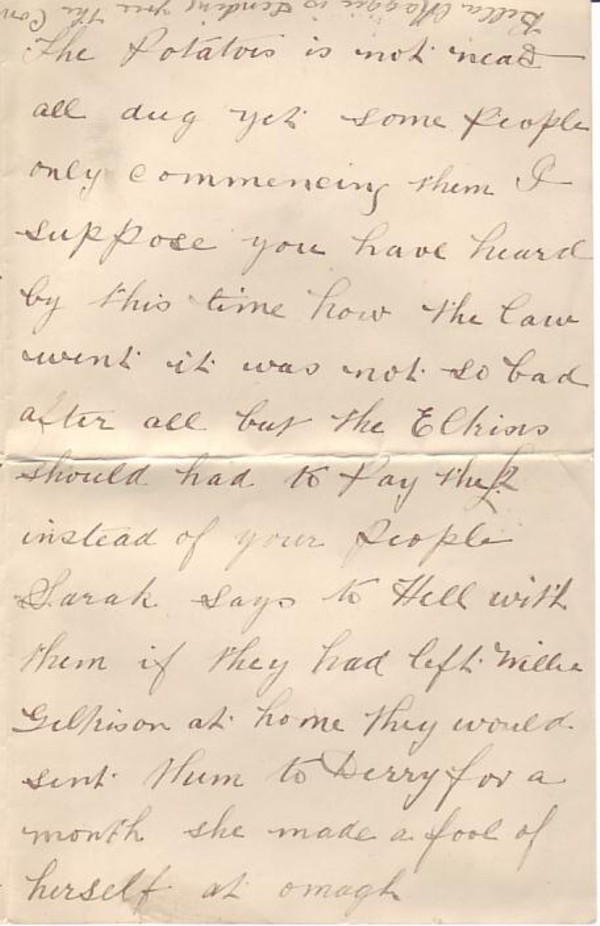 Bella Maggie is sending you the Con
The Potatois is not near
all dug yet some People
only commenceing them I
suppose you have heard
by this time how the law
went it was not so bad
after all but the
should had to Pay the £2
instead of your People
Sarah says to Hell with
them if they had left Willie
Gilkison at home they would
sent them to Derry for a
month she made a fool of
herself at omagh